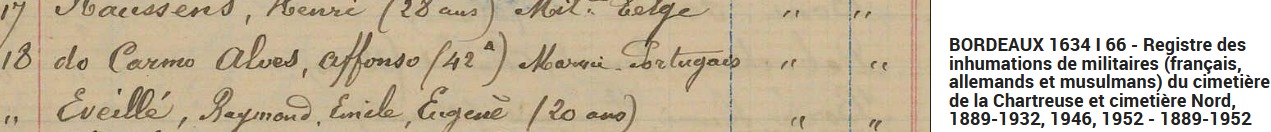 17 Haussens, Henri (28 ans) Mil.re belge " "
18 do Carmo Alves, Affonso (42 a) Marin Portugais " "
" Eveillé, Raymond, Emile, Eugène (20 ans) " "
BORDEAUX 1634 I 66 - Registre des
inhumations de militaires (français,
allemands et musulmans) du cimetière
de la Chartreuse et cimetière Nord,
1889-1932, 1946, 1952 - 1889-1952